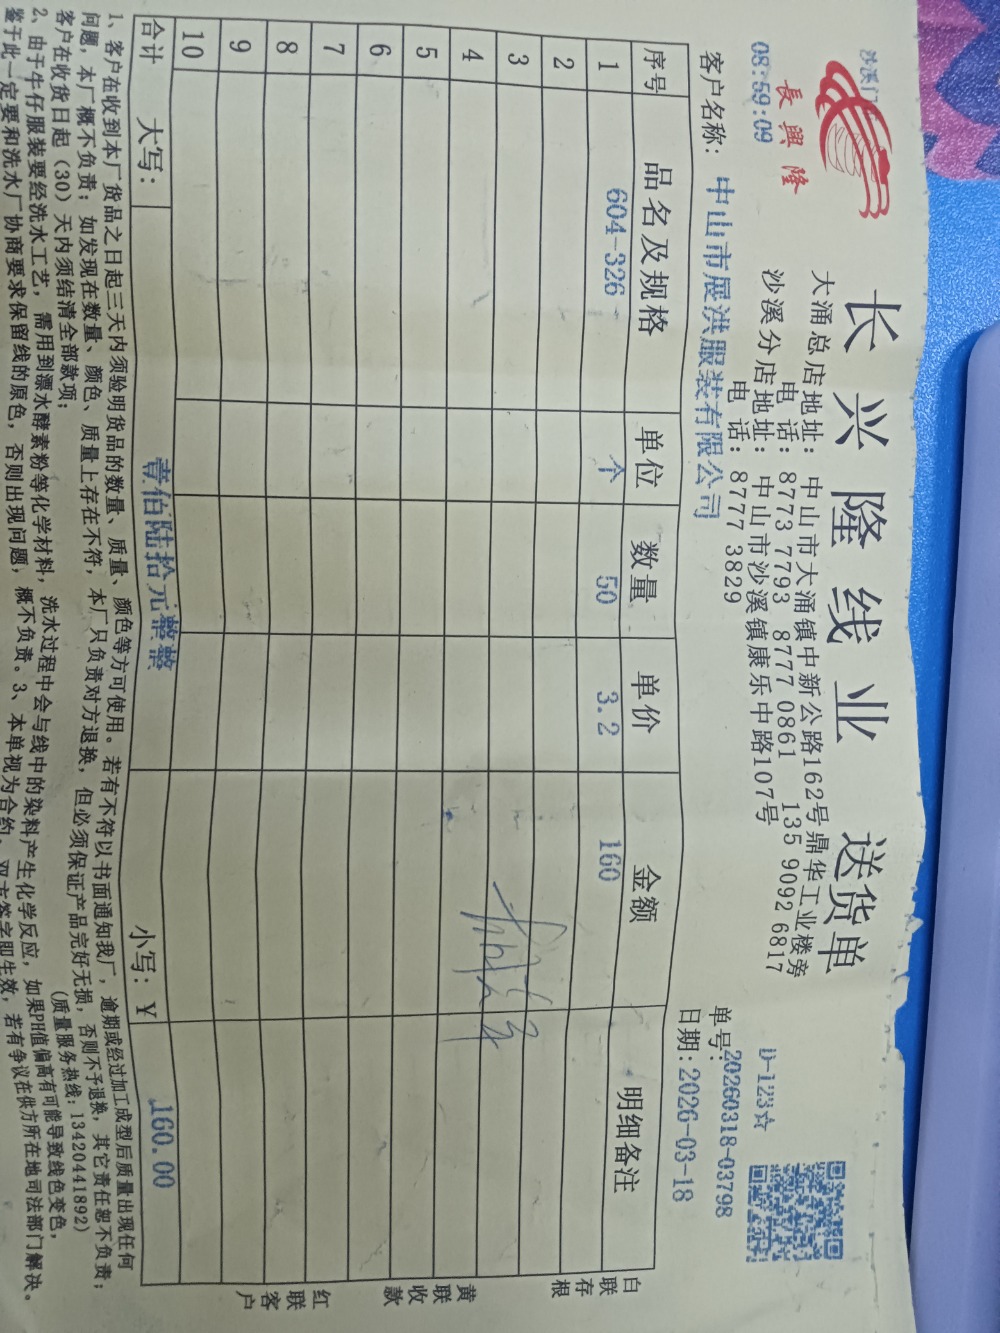 沙溪门
長興隆
08:59:09
长兴隆线业 送货单
大涌总店地址: 中山市大涌镇中新公路162号鼎华工业楼旁
电 话: 8773 7793 8777 0861 135 9092 6817
沙溪分店地址: 中山市沙溪镇康乐中路107号
电 话: 8777 3829
D-123☆
单号:20260318-03798
客户名称: 中山市展洪服装有限公司
日期:2026-03-18
序号 品名及规格 单位 数量 单价 金额 明细备注
1 604-326 个 50 3.2 160
2
3
4
5
6
7
8
9
10
合计 大写: 壹佰陆拾元整整 小写:¥ 160.00
白联存根
黄联收款
红联客户
1、客户在收到本厂货品之日起三天内须验明货品的数量、质量、颜色等方可使用。若有不符以书面通知我厂,逾期或经过加工成型后质量出现任何
问题,本厂概不负责;如发现在数量、颜色、质量上存在不符,本厂只负责对方退换,但必须保证产品完好无损,否则不予退换,其它责任恕不负责;
客户在收货日起(30)天内须结清全部款项;
(质量服务热线:13420441892)
2、由于牛仔服装要经洗水工艺,需用到漂水酵素粉等化学材料,洗水过程中会与线中的染料产生化学反应,如果PH值偏高有可能导致线色变色,
鉴于此一定要和洗水厂协商要求保留线的原色,否则出现问题,概不负责。3、本单视为合约,双方签字即生效,若有争议在供方所在地司法部门解决。